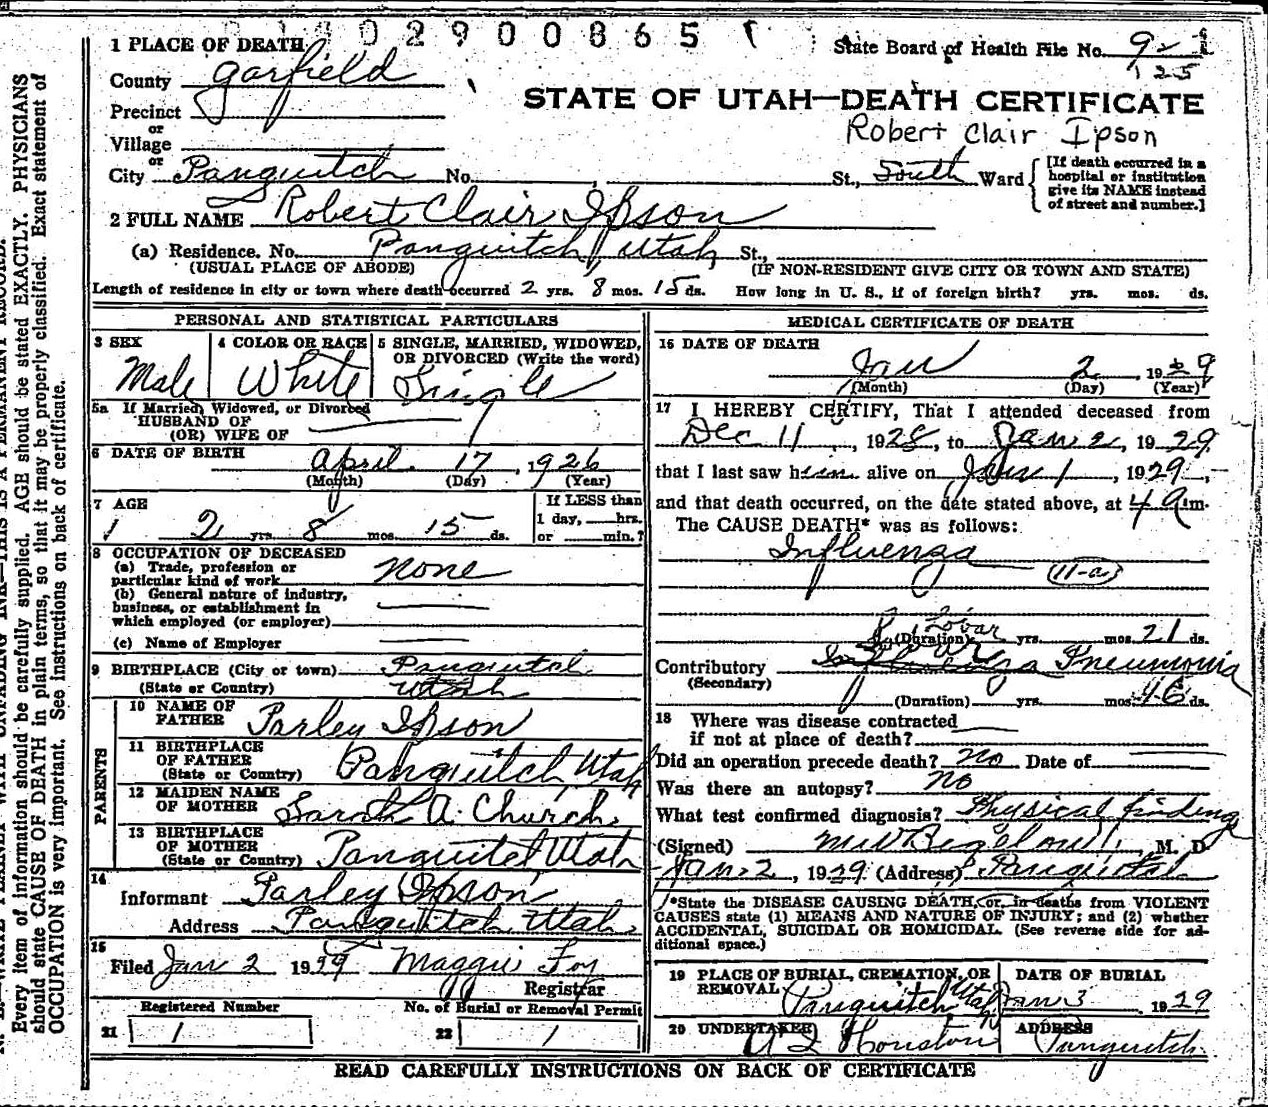 02900865
1 PLACE OF DEATH
State Board of Health File No. 9-1
125
County Garfield
STATE OF UTAH—DEATH CERTIFICATE
Precinct
or
Robert Clair Ipson
Village
or
City Panguitch No. , St., South Ward
[If death occurred in a hospital or institution give its NAME instead of street and number.]
2 FULL NAME Robert Clair Ipson
(a) Residence. No. Panguitch, Utah St.,
(USUAL PLACE OF ABODE) (IF NON-RESIDENT GIVE CITY OR TOWN AND STATE)
Length of residence in city or town where death occurred 2 yrs. 8 mos. 15 ds. How long in U. S., if of foreign birth? yrs. mos. ds.
PERSONAL AND STATISTICAL PARTICULARS
3 SEX Male
4 COLOR OR RACE White
5 SINGLE, MARRIED, WIDOWED, OR DIVORCED (Write the word) Single
5a If Married, Widowed, or Divorced
HUSBAND OF
(OR) WIFE OF
6 DATE OF BIRTH April 17, 1926
(Month) (Day) (Year)
7 AGE
2 yrs 8 mos. 15 ds.
If LESS than
1 day, hrs.
or min.?
8 OCCUPATION OF DECEASED
(a) Trade, profession or
particular kind of work none
(b) General nature of industry,
business, or establishment in
which employed (or employer)
(c) Name of Employer
9 BIRTHPLACE (City or town) Panguitch
(State or Country) Utah
PARENTS
10 NAME OF
FATHER Parley Ipson
11 BIRTHPLACE
OF FATHER
(State or Country) Panguitch Utah
12 MAIDEN NAME
OF MOTHER Sarah A. Church
13 BIRTHPLACE
OF MOTHER
(State or Country) Panguitch Utah
14
Informant Parley Ipson
Address Panguitch Utah
15
Filed Jan 2 1929 Maggie Foy
Registrar
Registered Number No. of Burial or Removal Permit
21 1 22 1
MEDICAL CERTIFICATE OF DEATH
16 DATE OF DEATH
Jan 2 1929
(Month) (Day) (Year)
17 I HEREBY CERTIFY, That I attended deceased from
Dec 11, 1928, to Jan 2, 1929
that I last saw him alive on Jan 1, 1929,
and that death occurred, on the date stated above, at 4 a m.
The CAUSE DEATH* was as follows:
Influenza
(11-a)
(Duration) yrs. mos. 21 ds.
Lobar
Contributory Pneumonia
(Secondary)
(Duration) yrs. mos. ds.
18 Where was disease contracted
if not at place of death?
Did an operation precede death? no Date of
Was there an autopsy? no
What test confirmed diagnosis? Physical findings
(Signed) M W Bigelow, M. D.
Jan. 2, 1929 (Address) Panguitch
*State the DISEASE CAUSING DEATH, or, in deaths from VIOLENT
CAUSES state (1) MEANS AND NATURE OF INJURY; and (2) whether
ACCIDENTAL, SUICIDAL OR HOMICIDAL. (See reverse side for ad-
ditional space.)
19 PLACE OF BURIAL, CREMATION, OR
REMOVAL Panguitch Utah
DATE OF BURIAL
Jan 3 1929
20 UNDERTAKER Houston
ADDRESS
Panguitch
READ CAREFULLY INSTRUCTIONS ON BACK OF CERTIFICATE
Every item of information should be carefully supplied. AGE should be stated EXACTLY. PHYSICIANS
should state CAUSE OF DEATH in plain terms, so that it may be properly classified. Exact statement of
OCCUPATION is very important. See instructions on back of certificate.